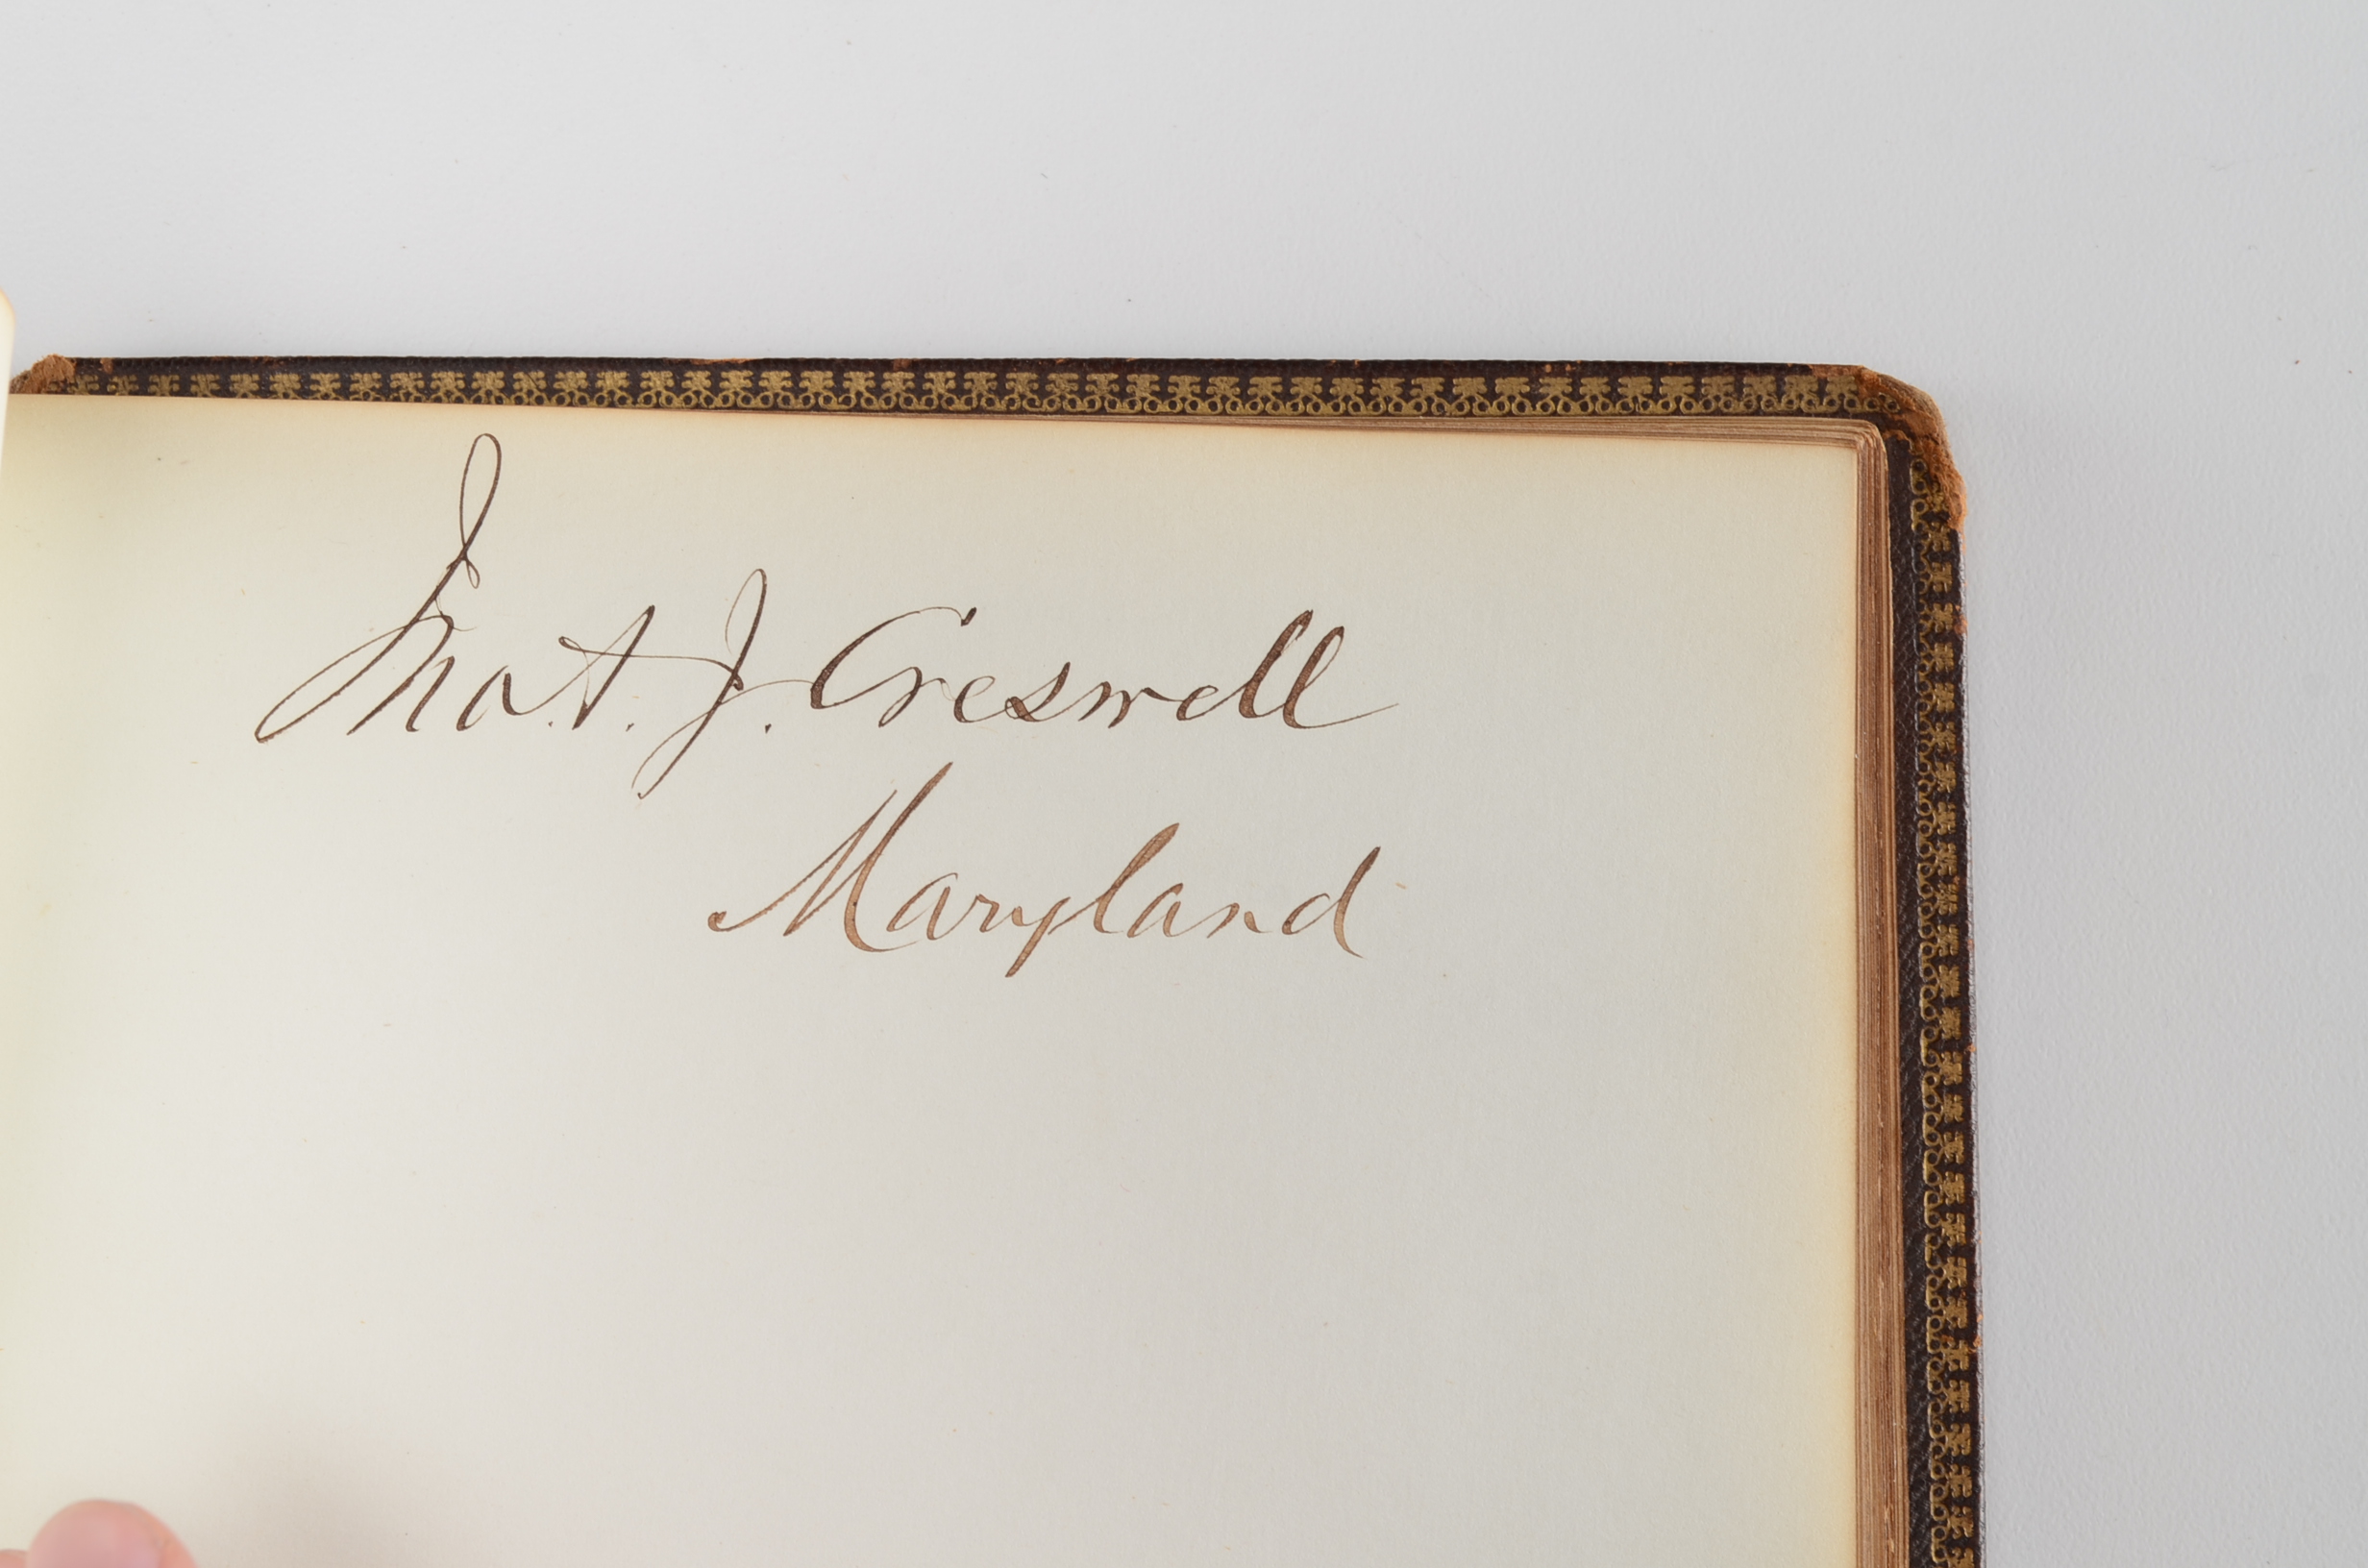 Jno. A. J. Creswell
Maryland